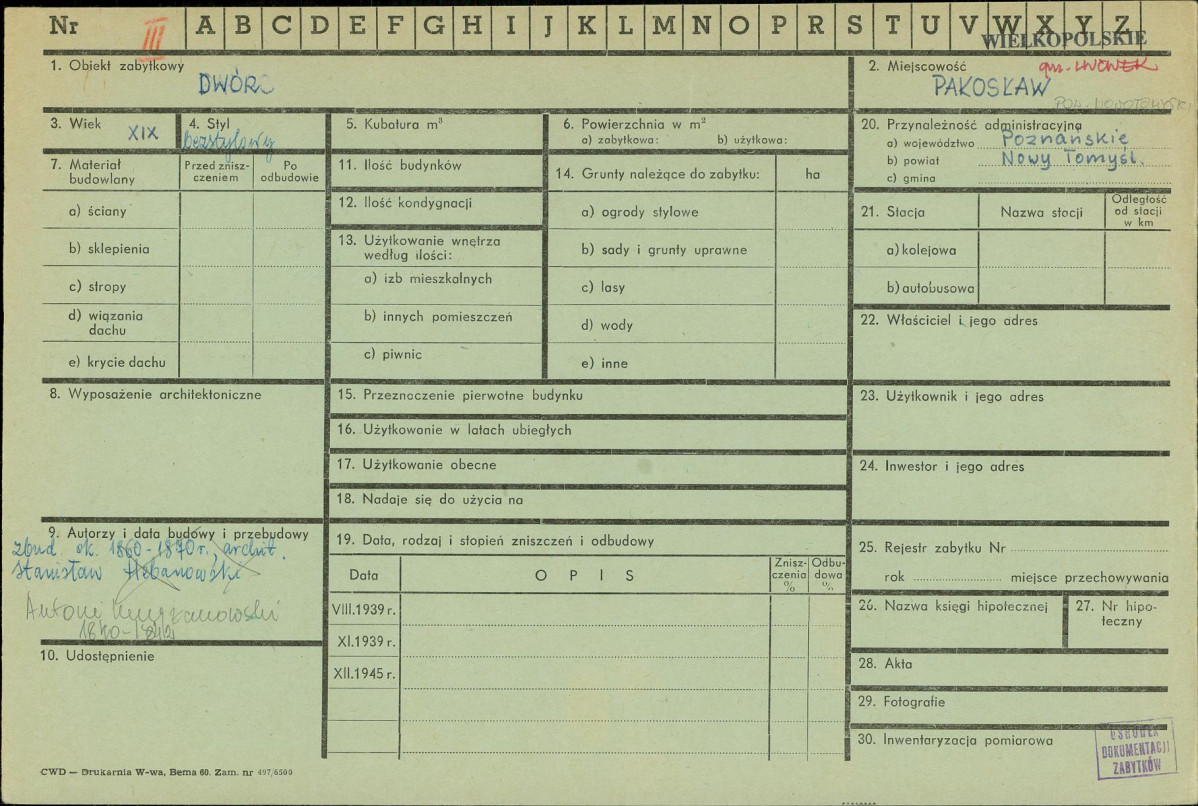 Nr III A B C D E F G H I J K L M N O P R S T U V W X Y Z
WIELKOPOLSKIE
1. Obiekt zabytkowy
DWÓR
2. Miejscowość gm. LWÓWEK
PAKOSŁAW
POW. NOWOTOMYSKI
3. Wiek XIX
4. Styl bezstylowy
5. Kubatura m³
6. Powierzchnia w m²
a) zabytkowa: b) użytkowa:
20. Przynależność administracyjna
a) województwo Poznańskie
b) powiat Nowy Tomyśl.
c) gmina
7. Materiał budowlany
Przed zniszczeniem
Po odbudowie
a) ściany
b) sklepienia
c) stropy
d) wiązania dachu
e) krycie dachu
11. Ilość budynków
12. Ilość kondygnacji
13. Użytkowanie wnętrza
według ilości:
a) izb mieszkalnych
b) innych pomieszczeń
c) piwnic
14. Grunty należące do zabytku: ha
a) ogrody stylowe
b) sady i grunty uprawne
c) lasy
d) wody
e) inne
21. Stacja Nazwa stacji
Odległość
od stacji
w km
a) kolejowa
b) autobusowa
22. Właściciel i jego adres
8. Wyposażenie architektoniczne
15. Przeznaczenie pierwotne budynku
16. Użytkowanie w latach ubiegłych
17. Użytkowanie obecne
18. Nadaje się do użycia na
23. Użytkownik i jego adres
24. Inwestor i jego adres
9. Autorzy i data budowy i przebudowy
zbud. ok. 1860-1870 r., archit.
Stanisław Hebanowski
Antoni
10. Udostępnienie
19. Data, rodzaj i stopień zniszczeń i odbudowy
Data OPIS
Zniszczenia %
Odbudowa %
VIII.1939 r.
XI.1939 r.
XII.1945 r.
25. Rejestr zabytku Nr
rok miejsce przechowywania
26. Nazwa księgi hipotecznej
27. Nr hipoteczny
28. Akta
29. Fotografie
30. Inwentaryzacja pomiarowa
OŚRODEK
DOKUMENTACJI
ZABYTKÓW
CWD — Drukarnia W-wa, Bema 60. Zam. nr 497/6500